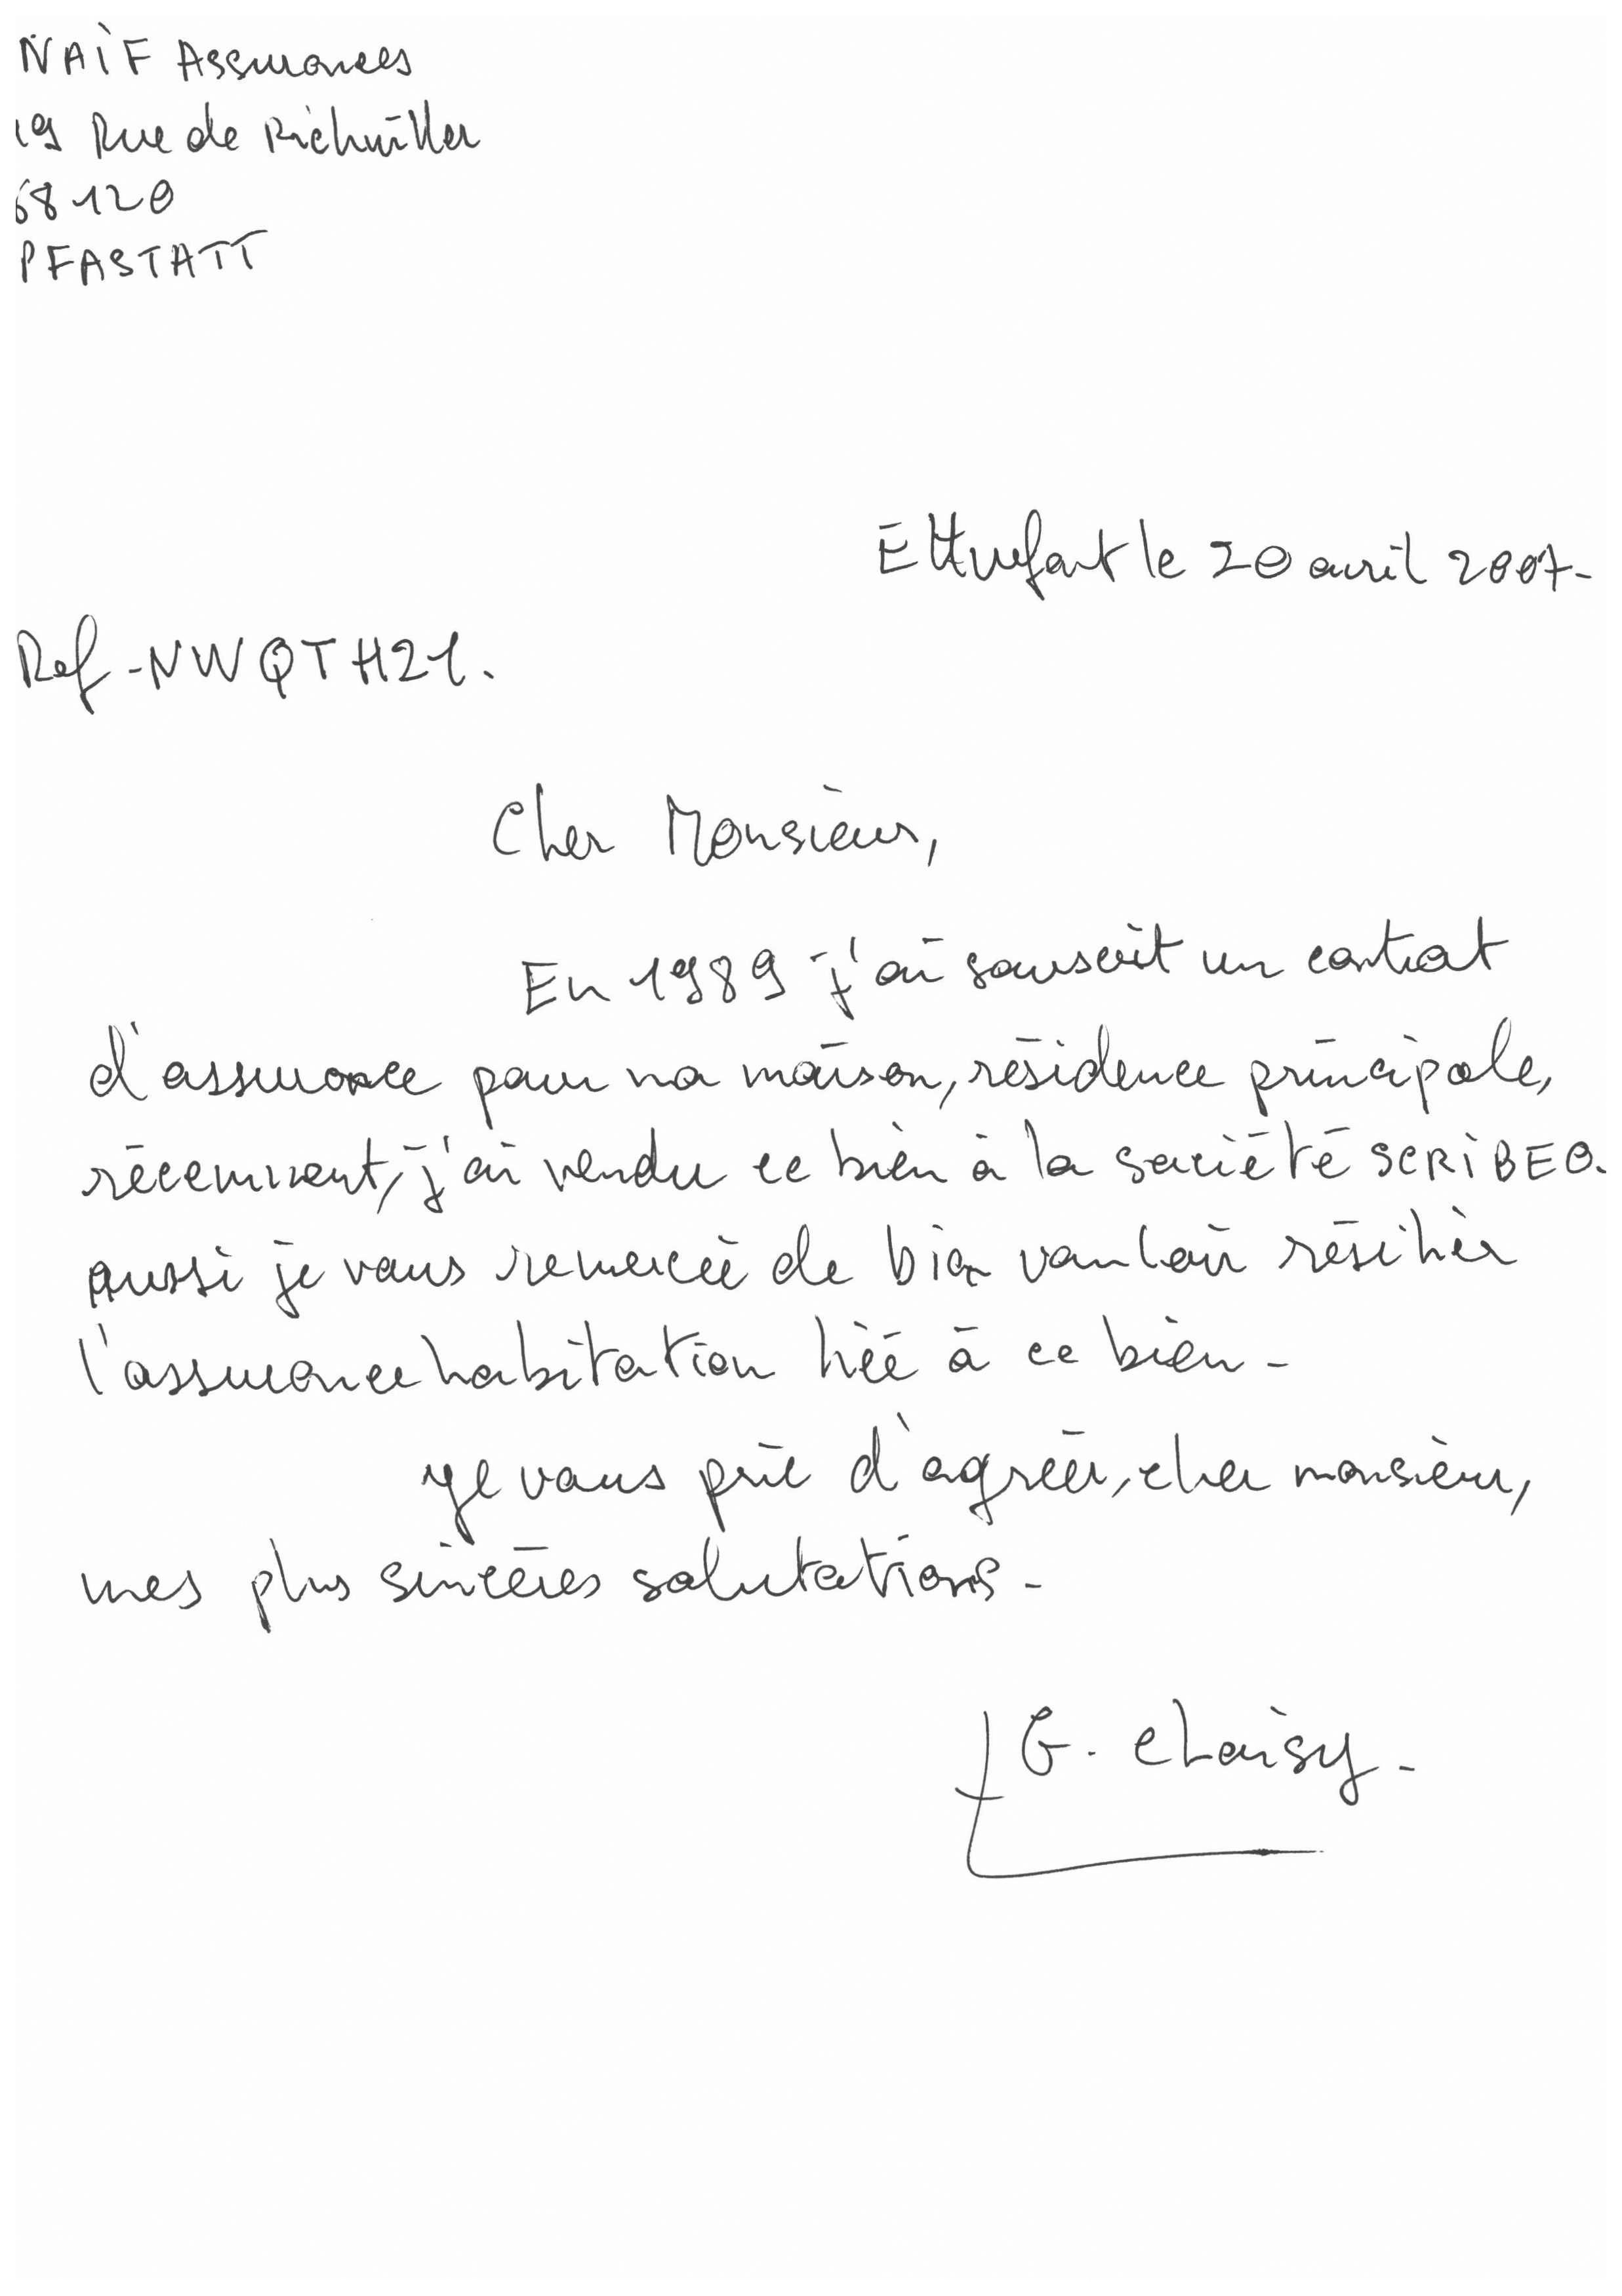 NAÏF Assurances
19 Rue de Richwiller
68120
PFASTATT
le 20 avril 2007-
Ref-NWQTH21.
Cher Monsieur,
En 1989 j'ai souscrit un contrat
d'assurance pour ma maison, résidence principale,
récemment, j'ai vendu ce bien à la société SCRIBEO.
aussi je vous remercie de bien vouloir résilier
l'assurance habitation liée à ce bien-
Je vous prie d'agréer, cher monsieur,
mes plus sincères salutations-
G. Choisy-